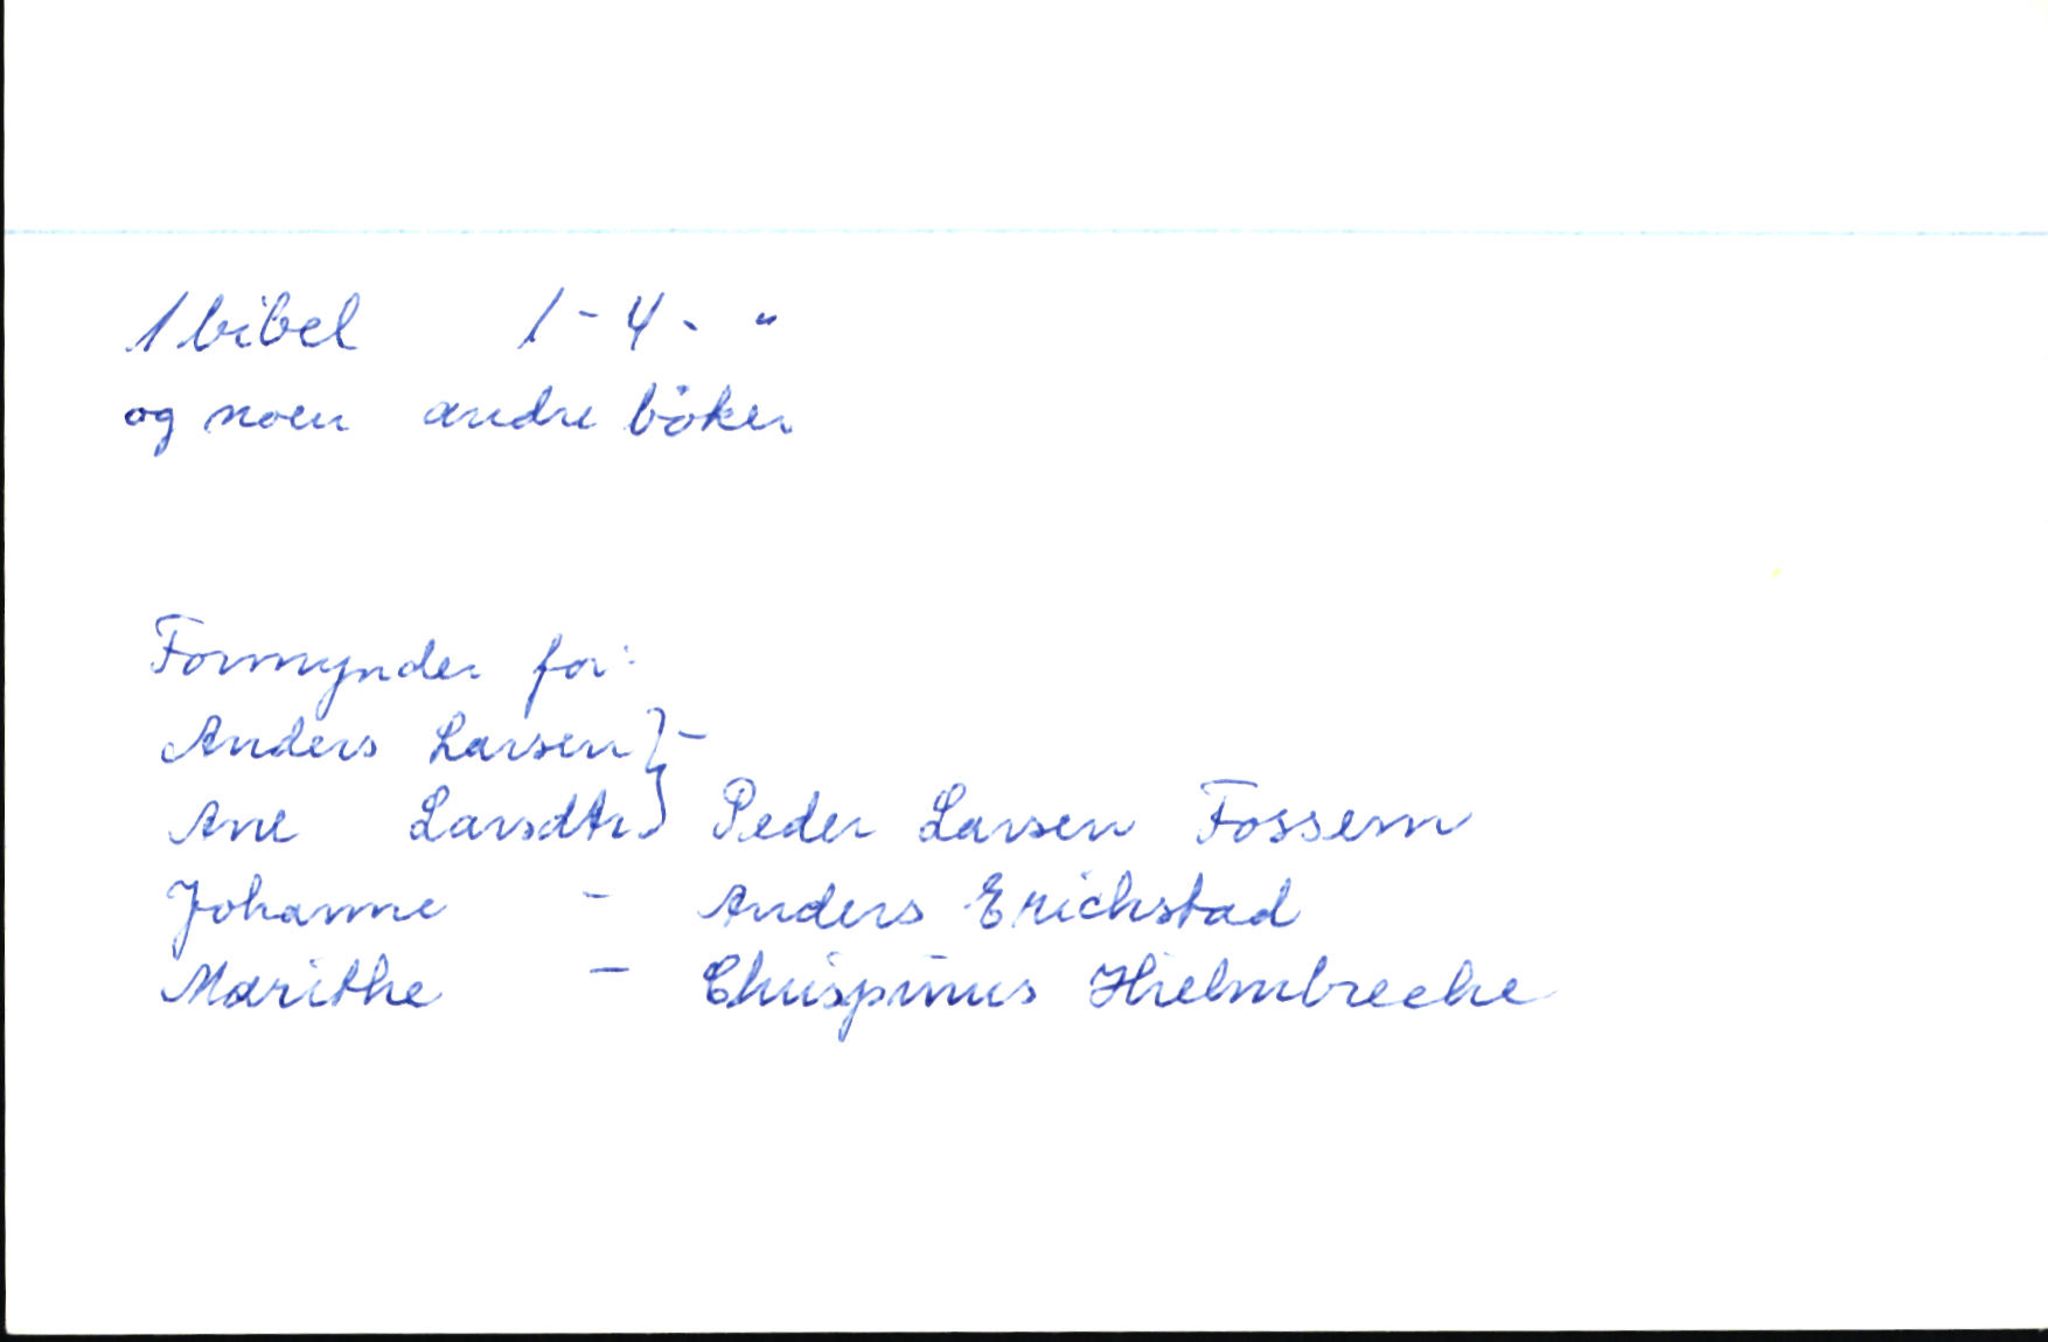 1 bibel 1 - 4 - "
og noen andre böker
Formynder for:
Anders Larsen } -
Ane Larsdtr. } Peder Larsen Fossem
Johanne - Anders Erichstad
Marithe - Chrispinus Hielmbreche